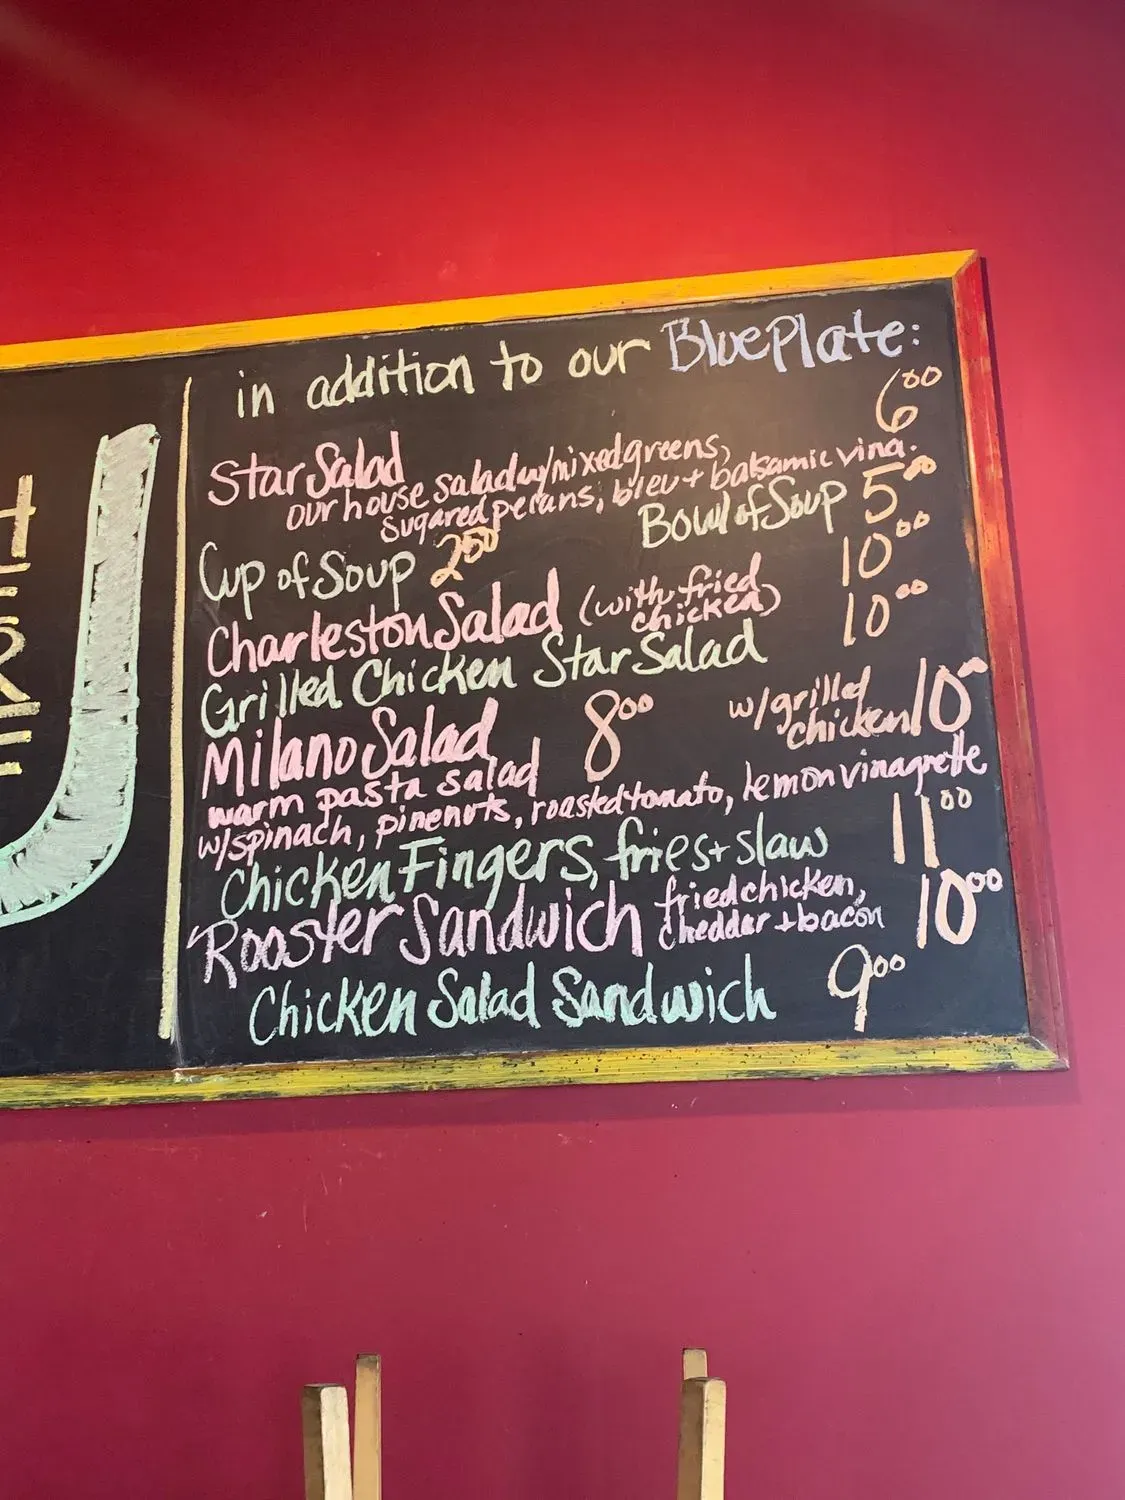 in addition to our Blue Plate:
Star Salad 6.00
our house salad w/mixed greens,
sugared pecans, bleu + balsamic vina.
Cup of Soup 2.50 Bowl of Soup 5.00
Charleston Salad (with fried chicken) 10.00
Grilled Chicken Star Salad 10.00
Milano Salad 8.00 w/grilled chicken 10.00
warm pasta salad
w/spinach, pinenuts, roasted tomato, lemon vinagrette
Chicken Fingers, fries + slaw 11.00
Rooster Sandwich fried chicken, cheddar + bacon 10.00
Chicken Salad Sandwich 9.00